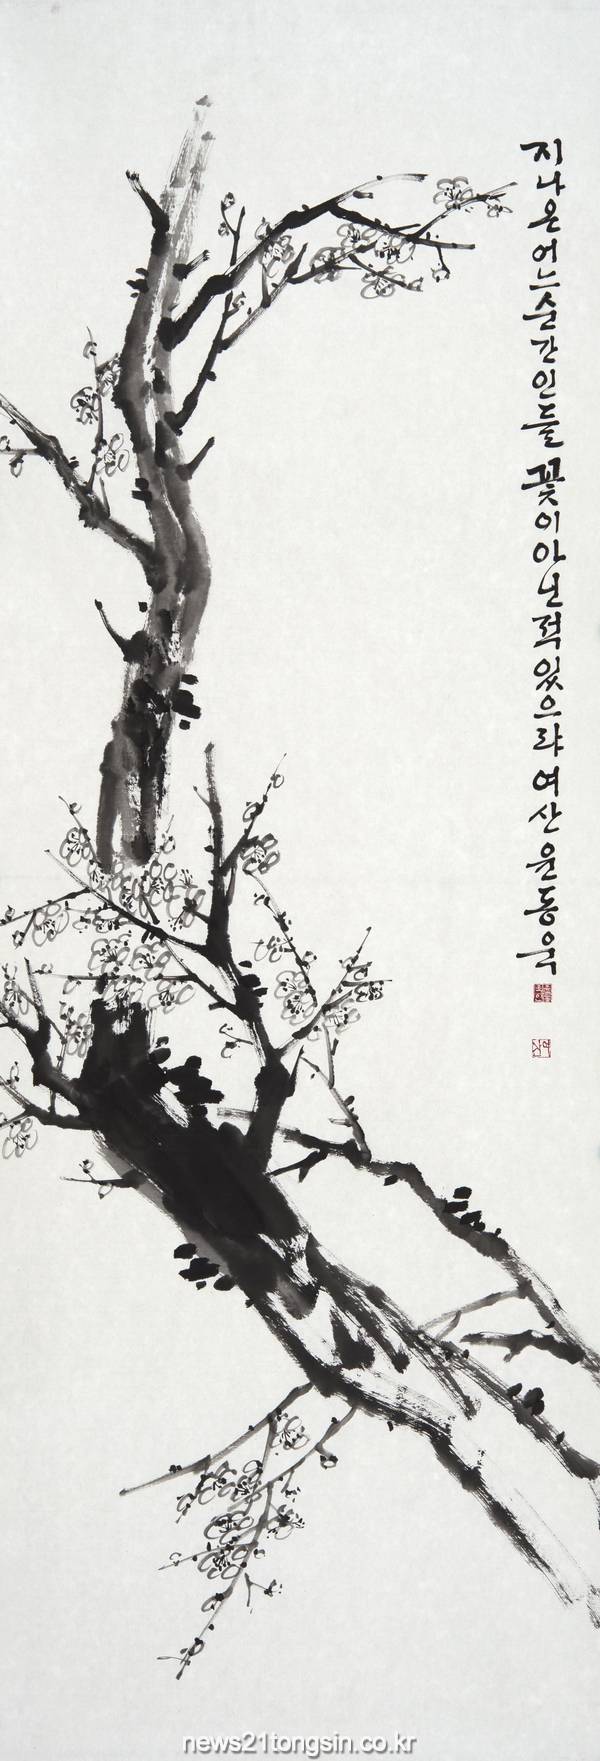 지나온 어느 순간인들 꽃이 아닌 적 있으랴 여산 윤동욱
여산
news21tongsin.co.kr